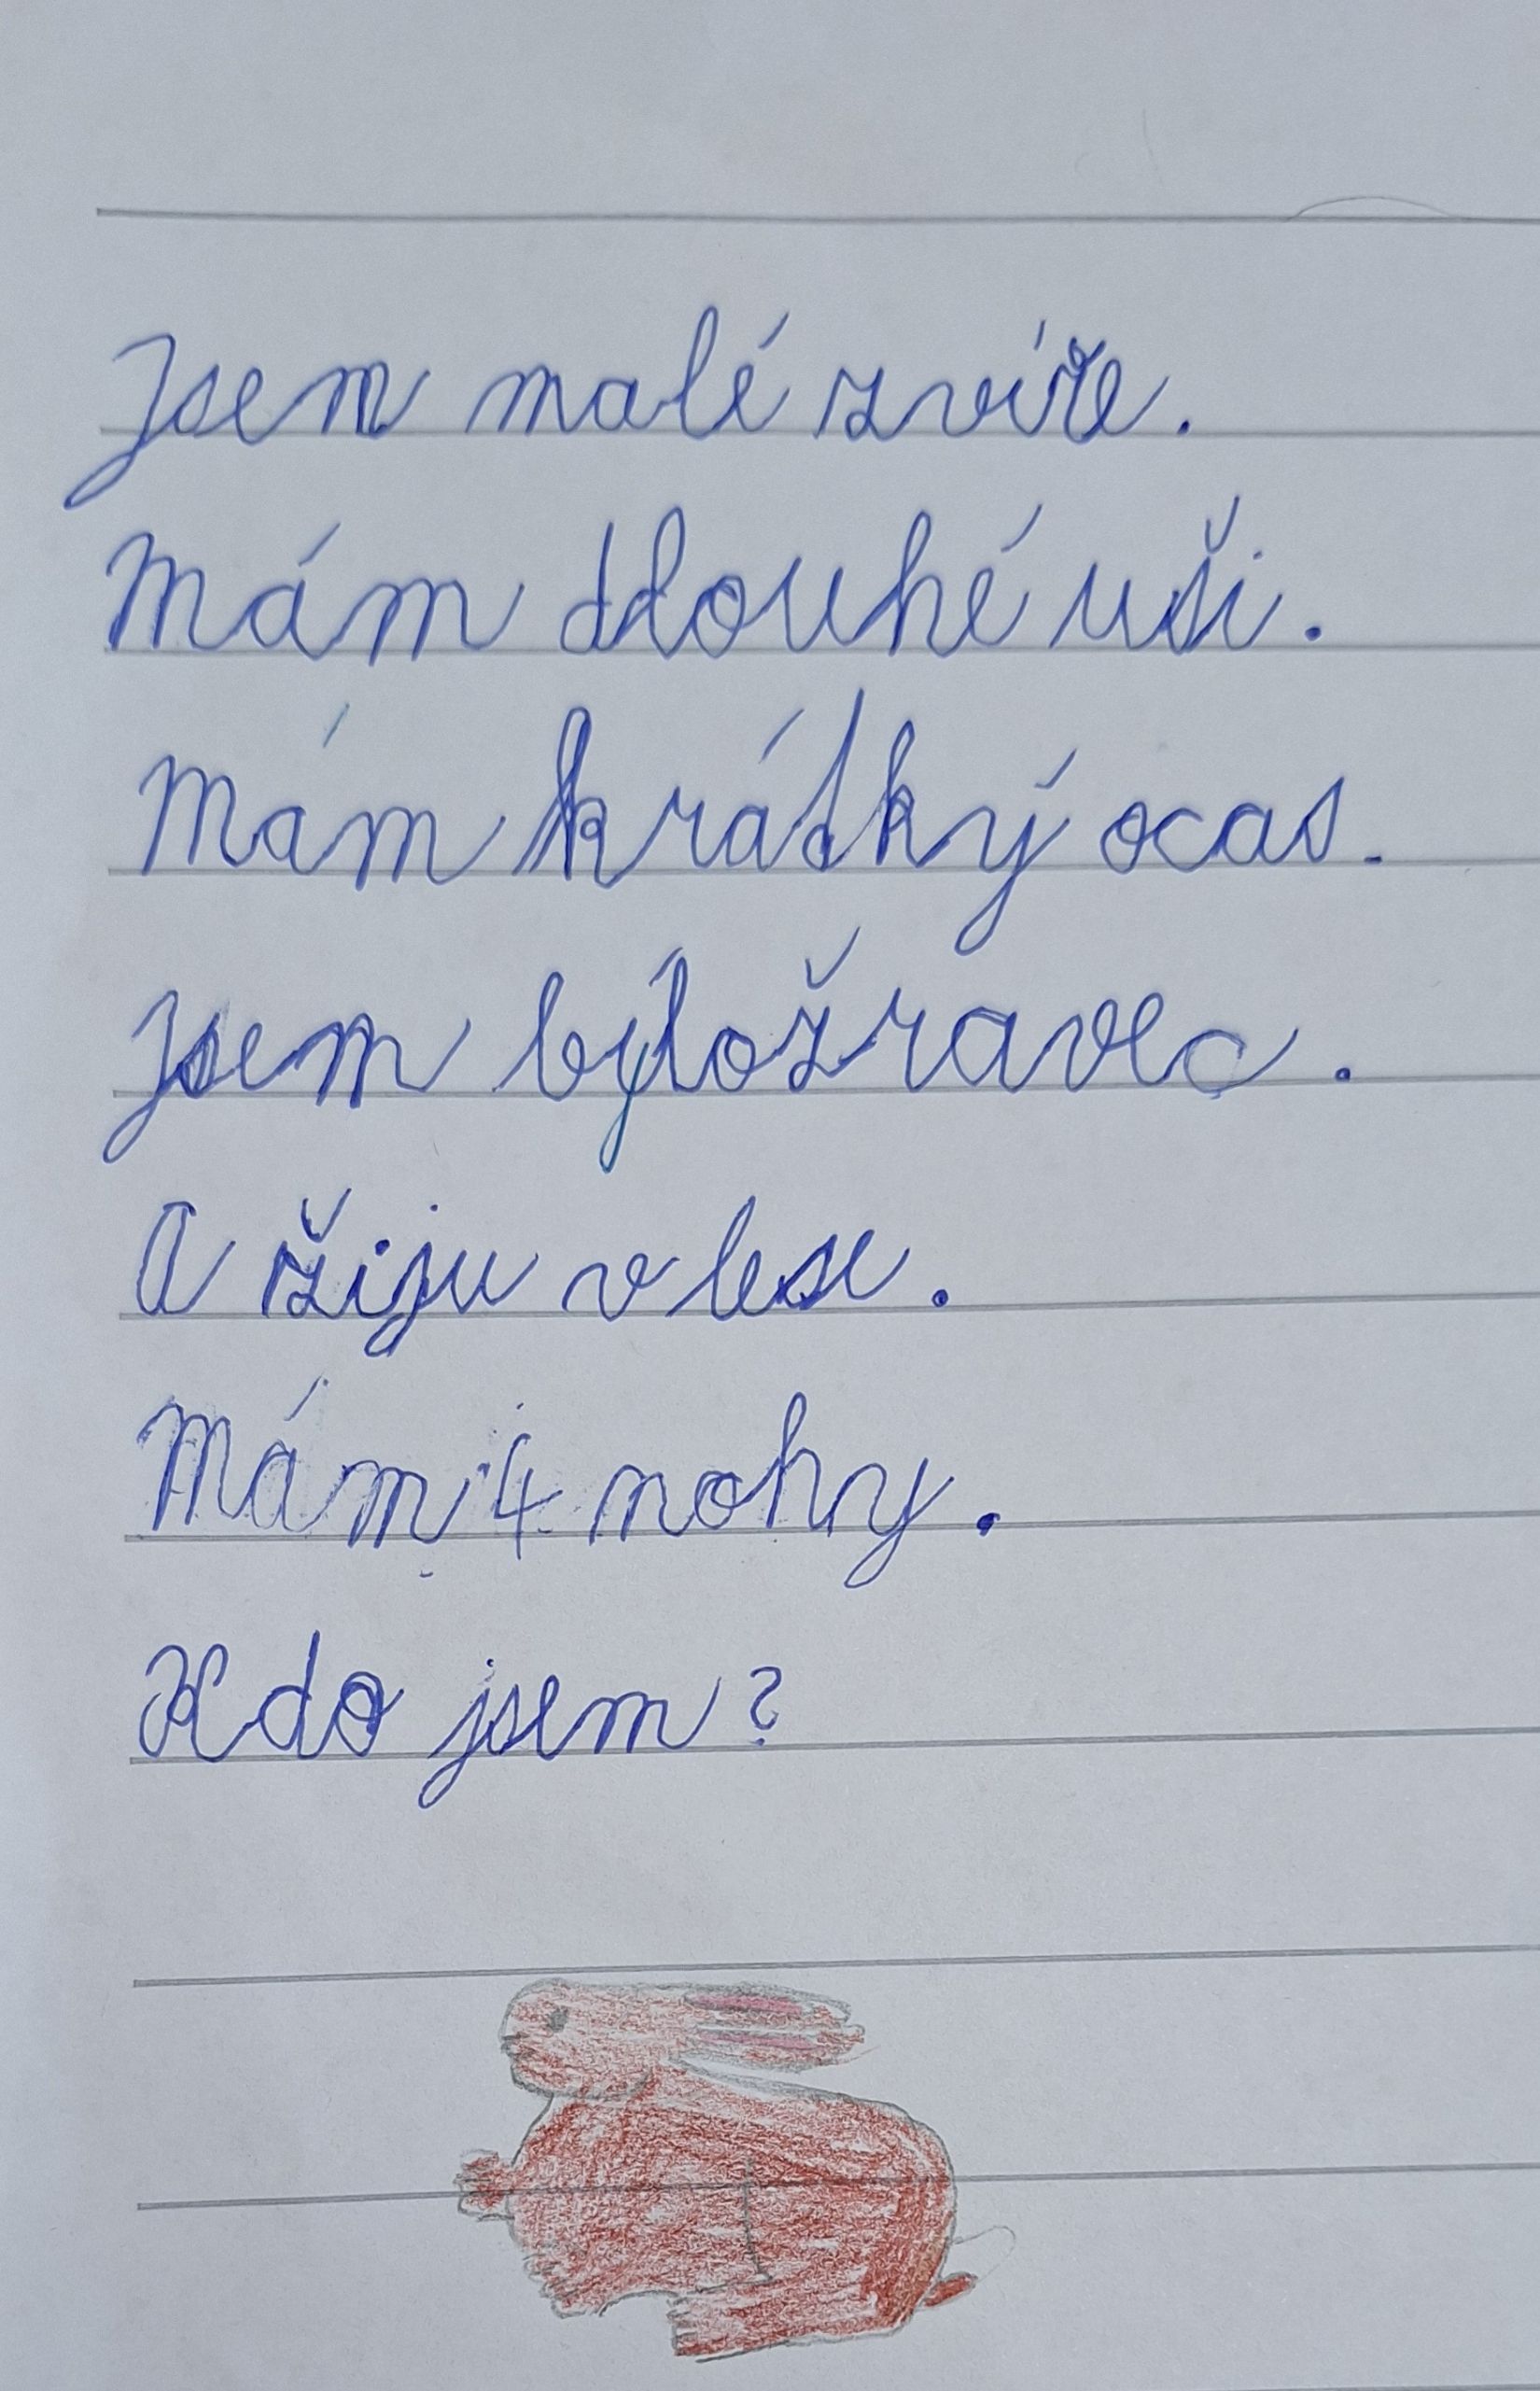 Jsem malé zvíře.
Mám dlouhé uši.
Mám krátký ocas.
Jsem býložravec.
A žiju v lese.
Mám 4 nohy.
Kdo jsem?